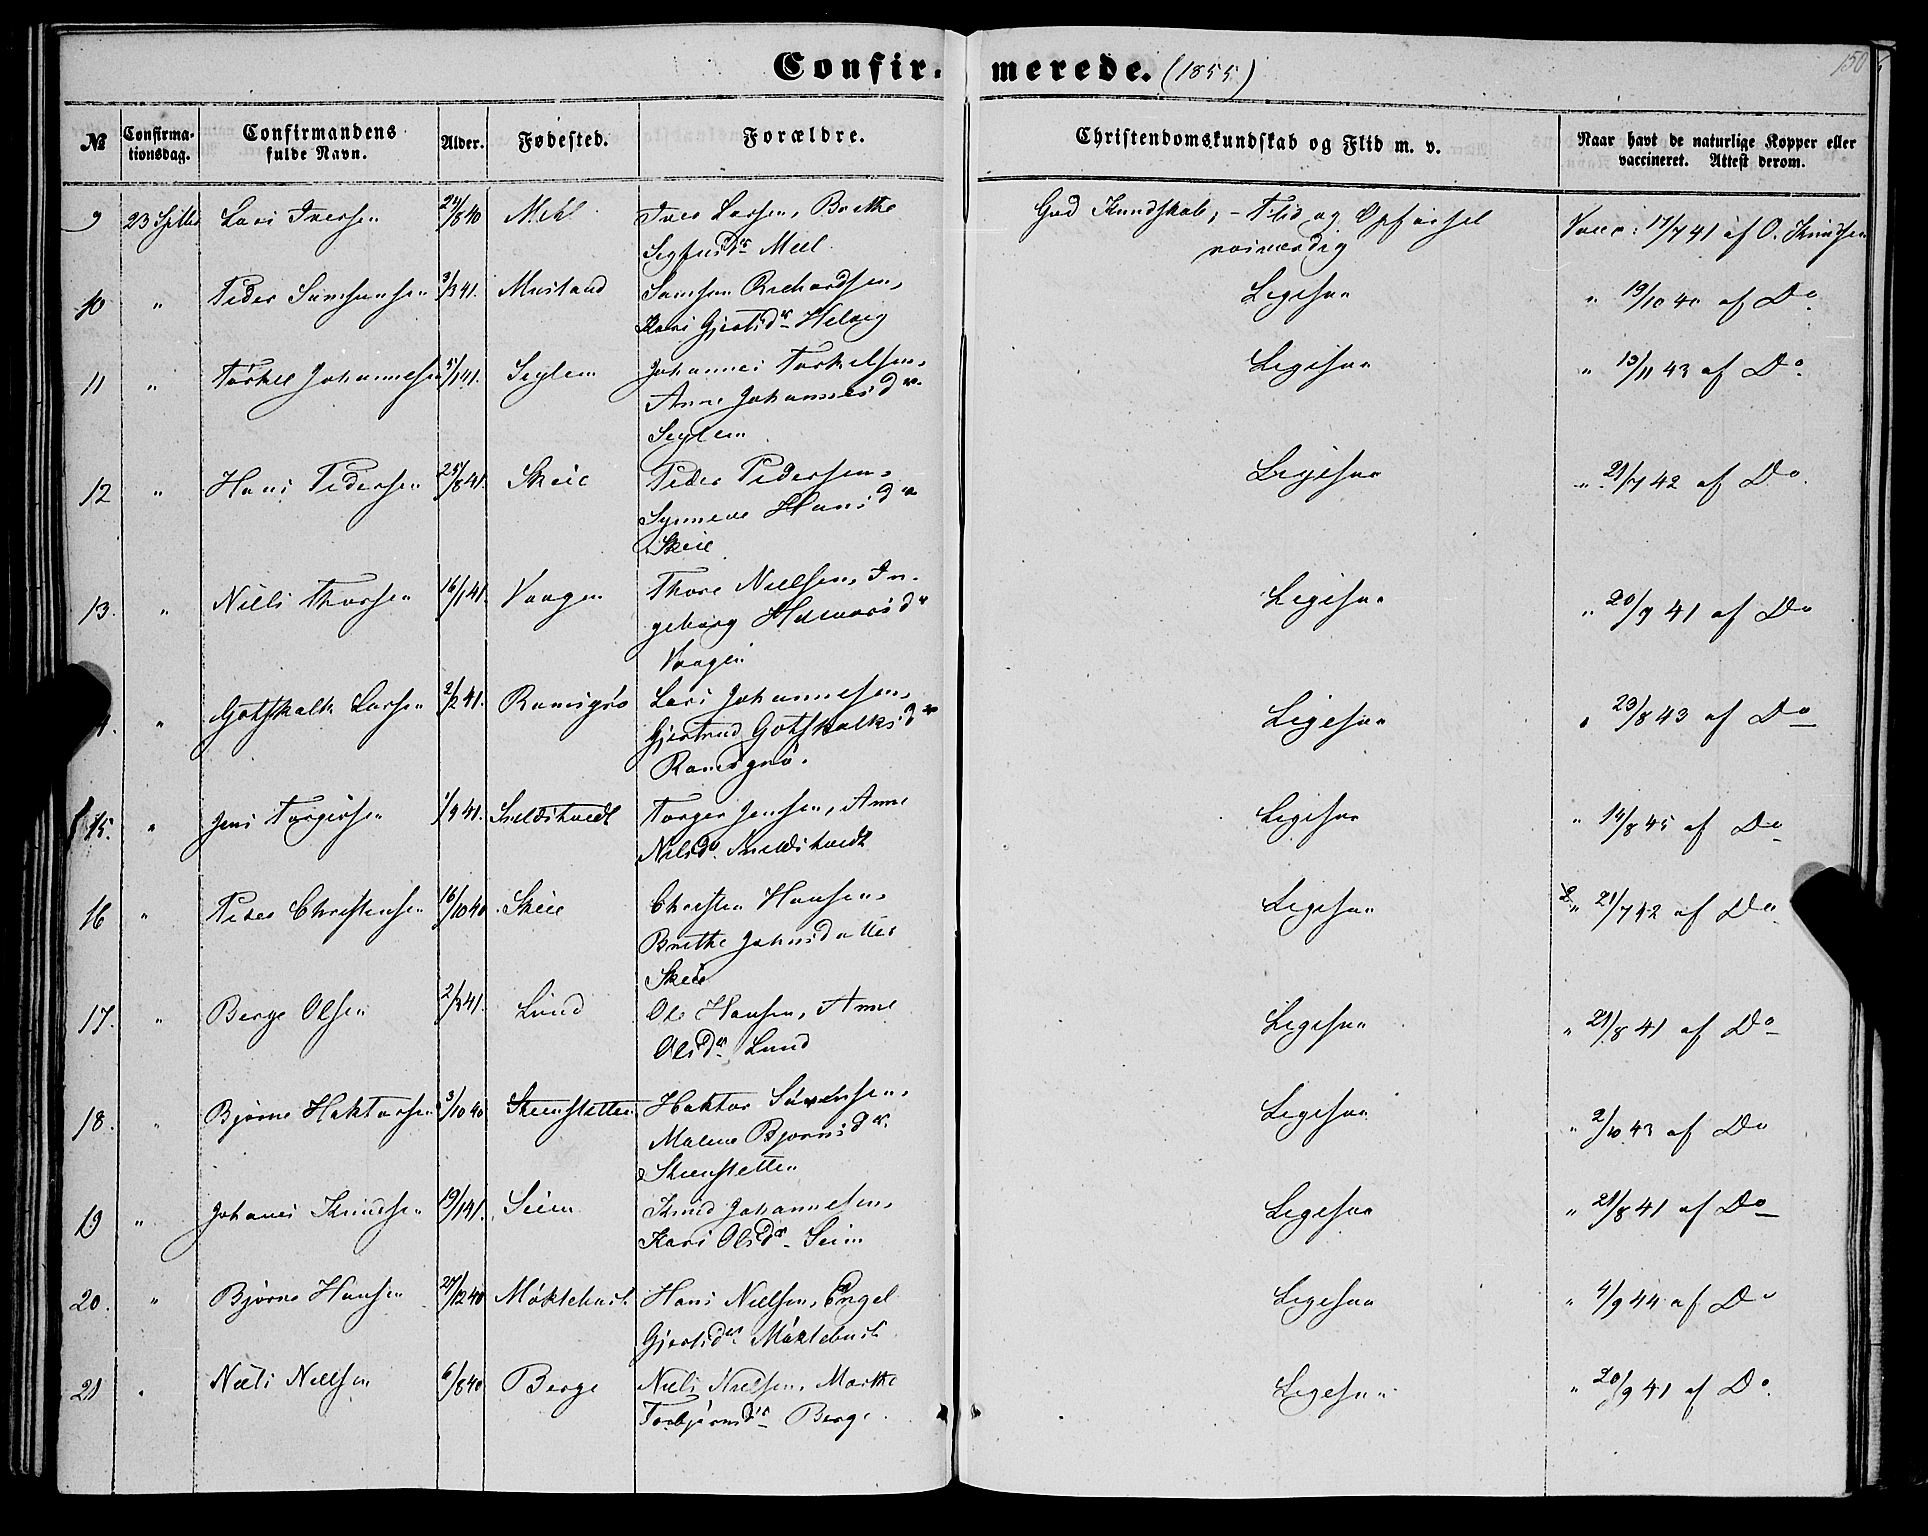 Confirmerede. (1855)
150
№ Confirma- Confirmandens Alder. Fødested. Forældre. Christendomskundskab og Flid m. v. Naar havt de naturlige Kopper eller
tionsdag. fulde Navn. vaccineret. Attest derom.
9 23 Septbr Lars Iversen 24/8 40 Mehl Iver Larsen, Brithe God Kundskab, - Flid og Opførsel Vacc: 17/7 41 af O. Knudsen
Sigfusdr Meel rosværdig
10 " Peder Samsonsen 3/3 41. Mustand Samson Richardsen, Ligesaa " 19/10 40 af Do
Kari Gjertsdr Helvig
11 " Torkel Johannesen 5/1 41. Seglem Johannes Torkelsen, Ligesaa " 13/11 43 af Do
Anne Johannesdr
Seglem
12 " Hans Pedersen 25/8 41. Skeie Peder Pedersen, Ligesaa " 21/7 42 af Do.
Synneve Hansdr
Skeie
13. " Niels Thorsen 16/1 41. Vaagen Thore Nielsen, In- Ligesaa " 20/9 41 af Do
geborg Halvorsdr
Vaagen
4. " Gotskalk Larsen 2/2 41. Ramsgrø Lars Johannesen, Ligesaa " 23/8 43 af Do
Gjertrud Gotskalksdr
Ramsgrø.
15. " Jens Torgersen 1/4 41. Sneldstvedt Torger Jensen, Anne Ligesaa " 14/8 45 af Do
Nilsdr Sneldstvedt
16 " Peder Christensen 16/10 40. Skeie Christen Hansen, Ligesaa " 21/7 42 af Do
Brithe Johnsdatter
Skeie
17. " Berge Olsen 2/3 41. Lund Ole Hansen, Anne Ligesaa " 21/8 41 af Do
Olsdr Lund
18. " Bjørne Haktorsen 3/10 40 Steenstetten Haktor Sørensen, Ligesaa " 2/10 43 af Do
Malene Bjørnsdr
Steenstetten
19 " Johanes Knudsen 19/1 41. Seim Knud Johannesen, Ligesaa " 21/8 41 af Do
Kari Olsdr Seim
20. " Bjørne Hansen 27/12 40 Møklebust Hans Nielsen, Engel Ligesaa " 4/9 44 af Do
Gjertsdr Møklebust
21 " Niels Nielsen 6/8 40 Berge Niels Nielsen, Marthe Ligesaa " 20/9 41 af Do.
Torbjørnsdr Berge.